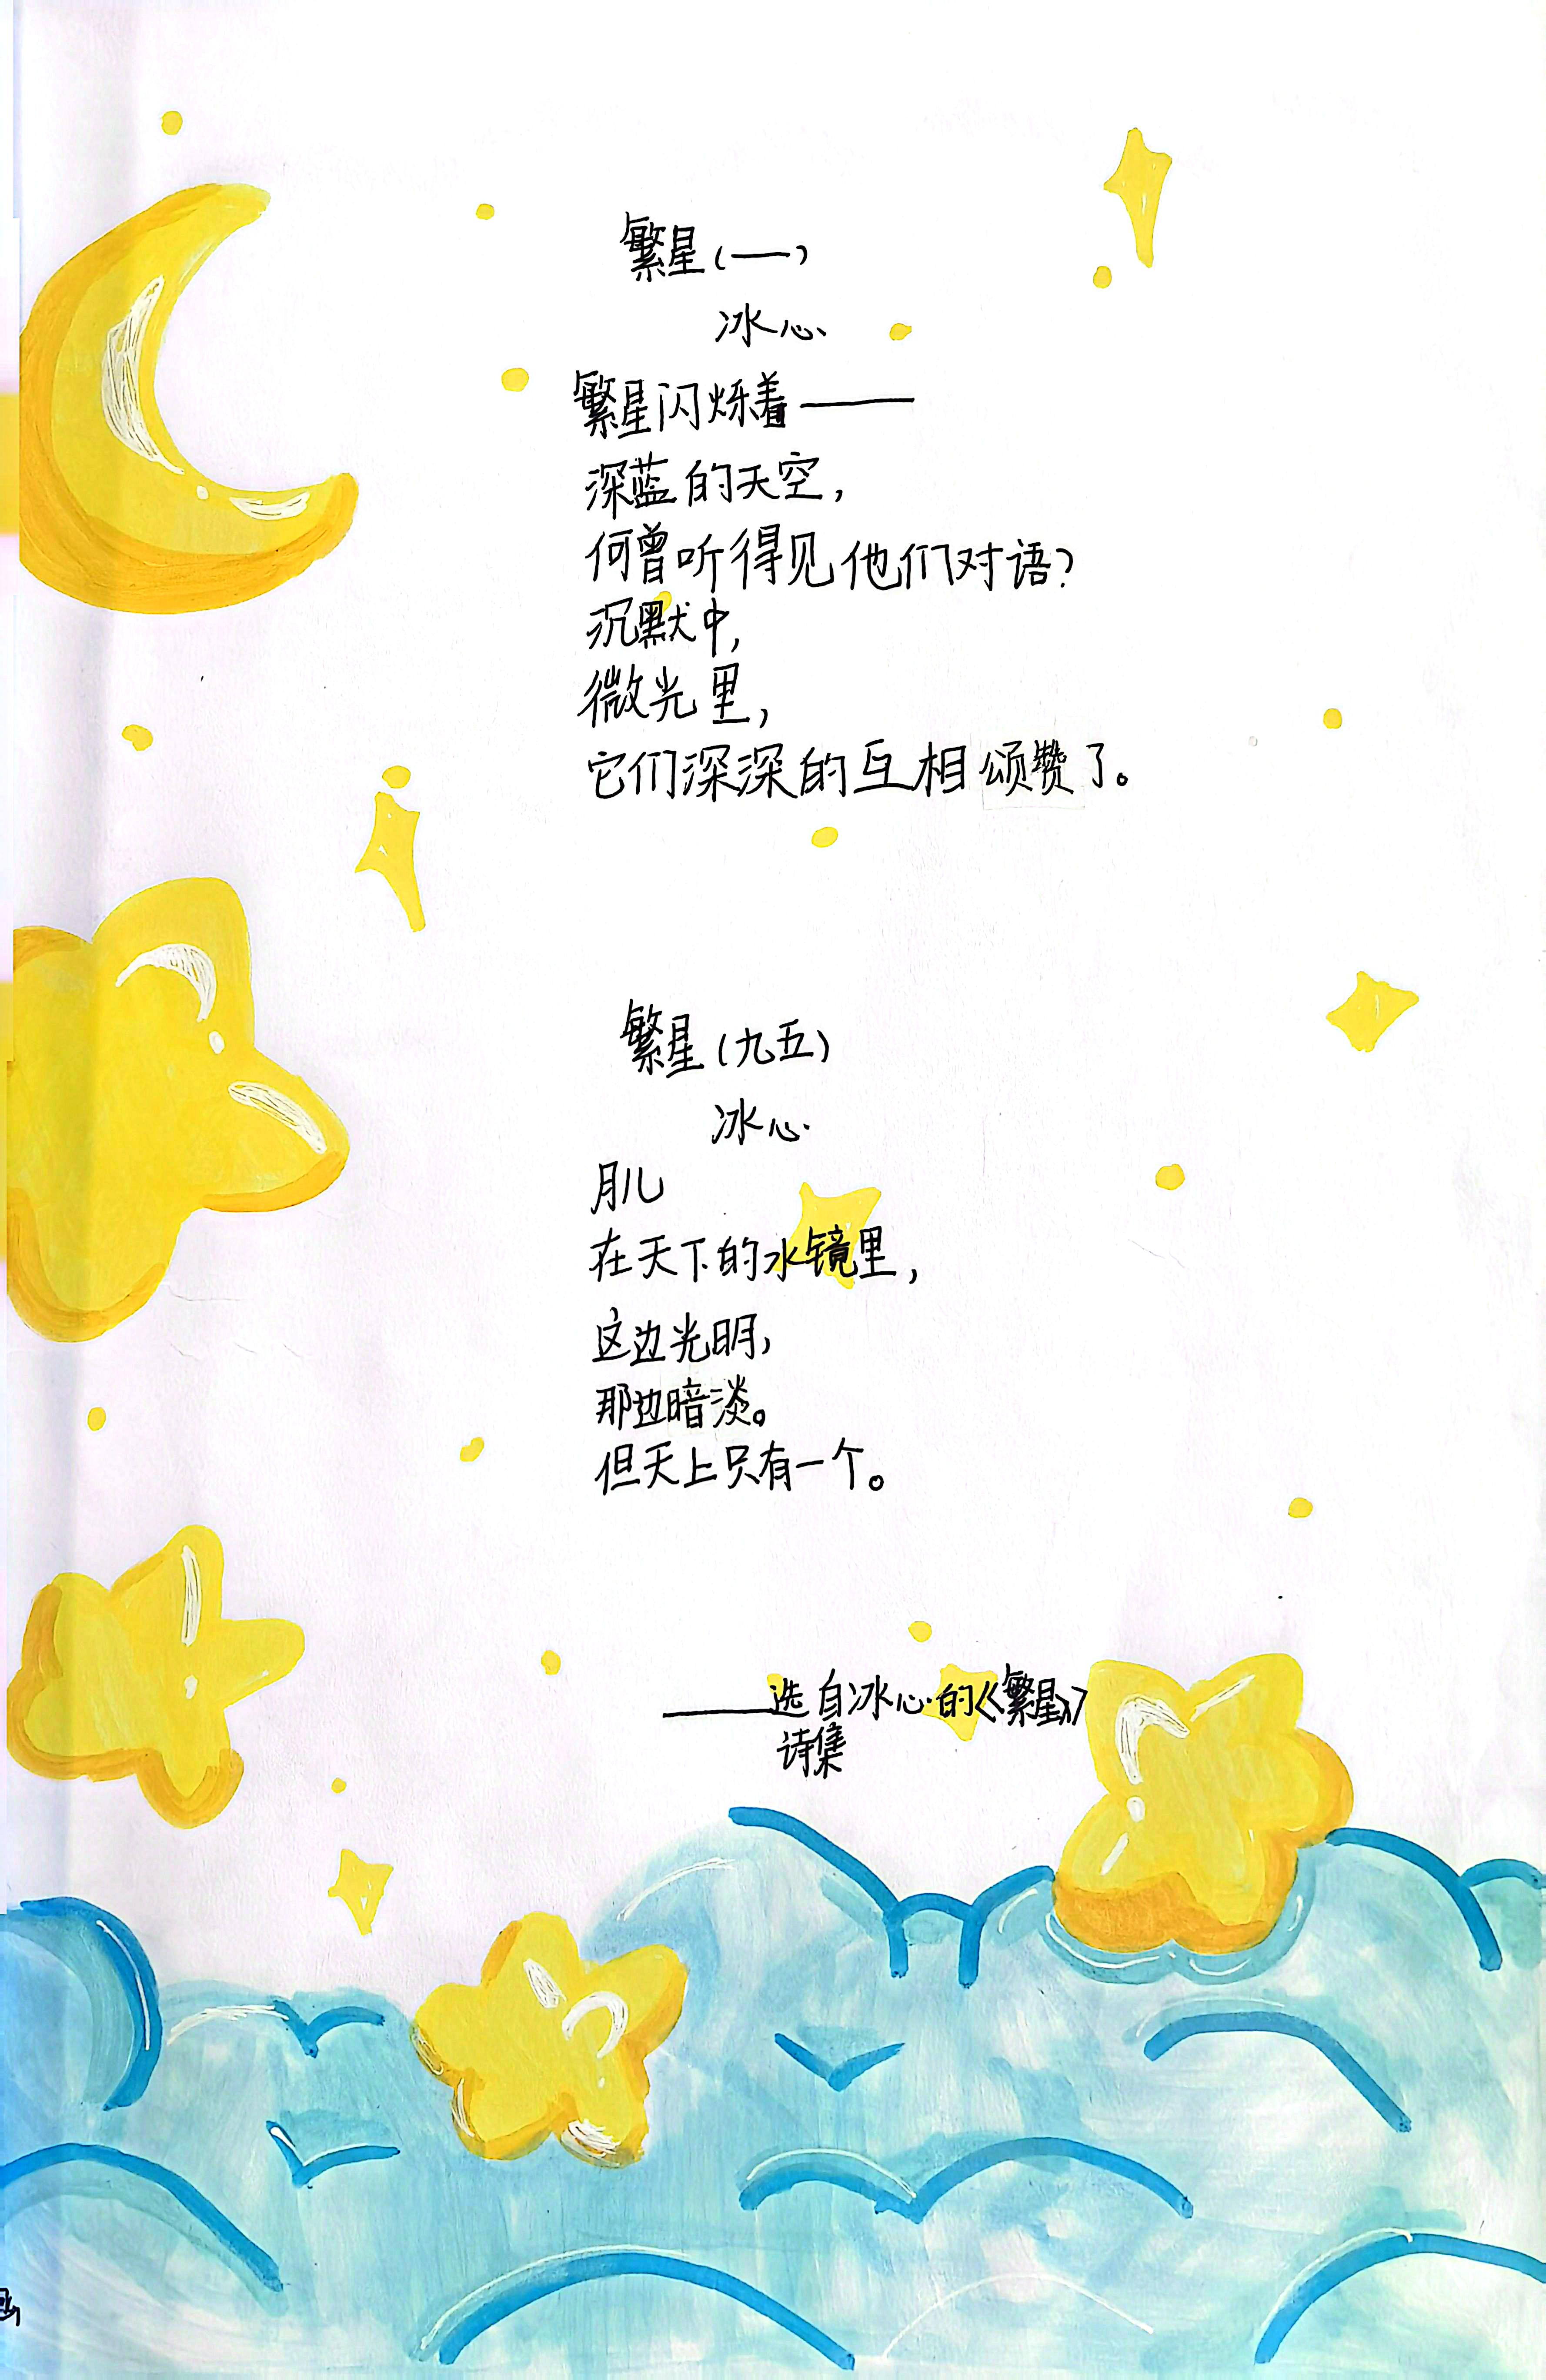 繁星(一)
冰心
繁星闪烁着——
深蓝的天空,
何曾听得见他们对语?
沉默中,
微光里,
它们深深的互相颂赞了。
繁星(九五)
冰心
月儿
在天下的水镜里,
这边光明,
那边暗淡。
但天上只有一个。
——选自冰心的《繁星》
诗集